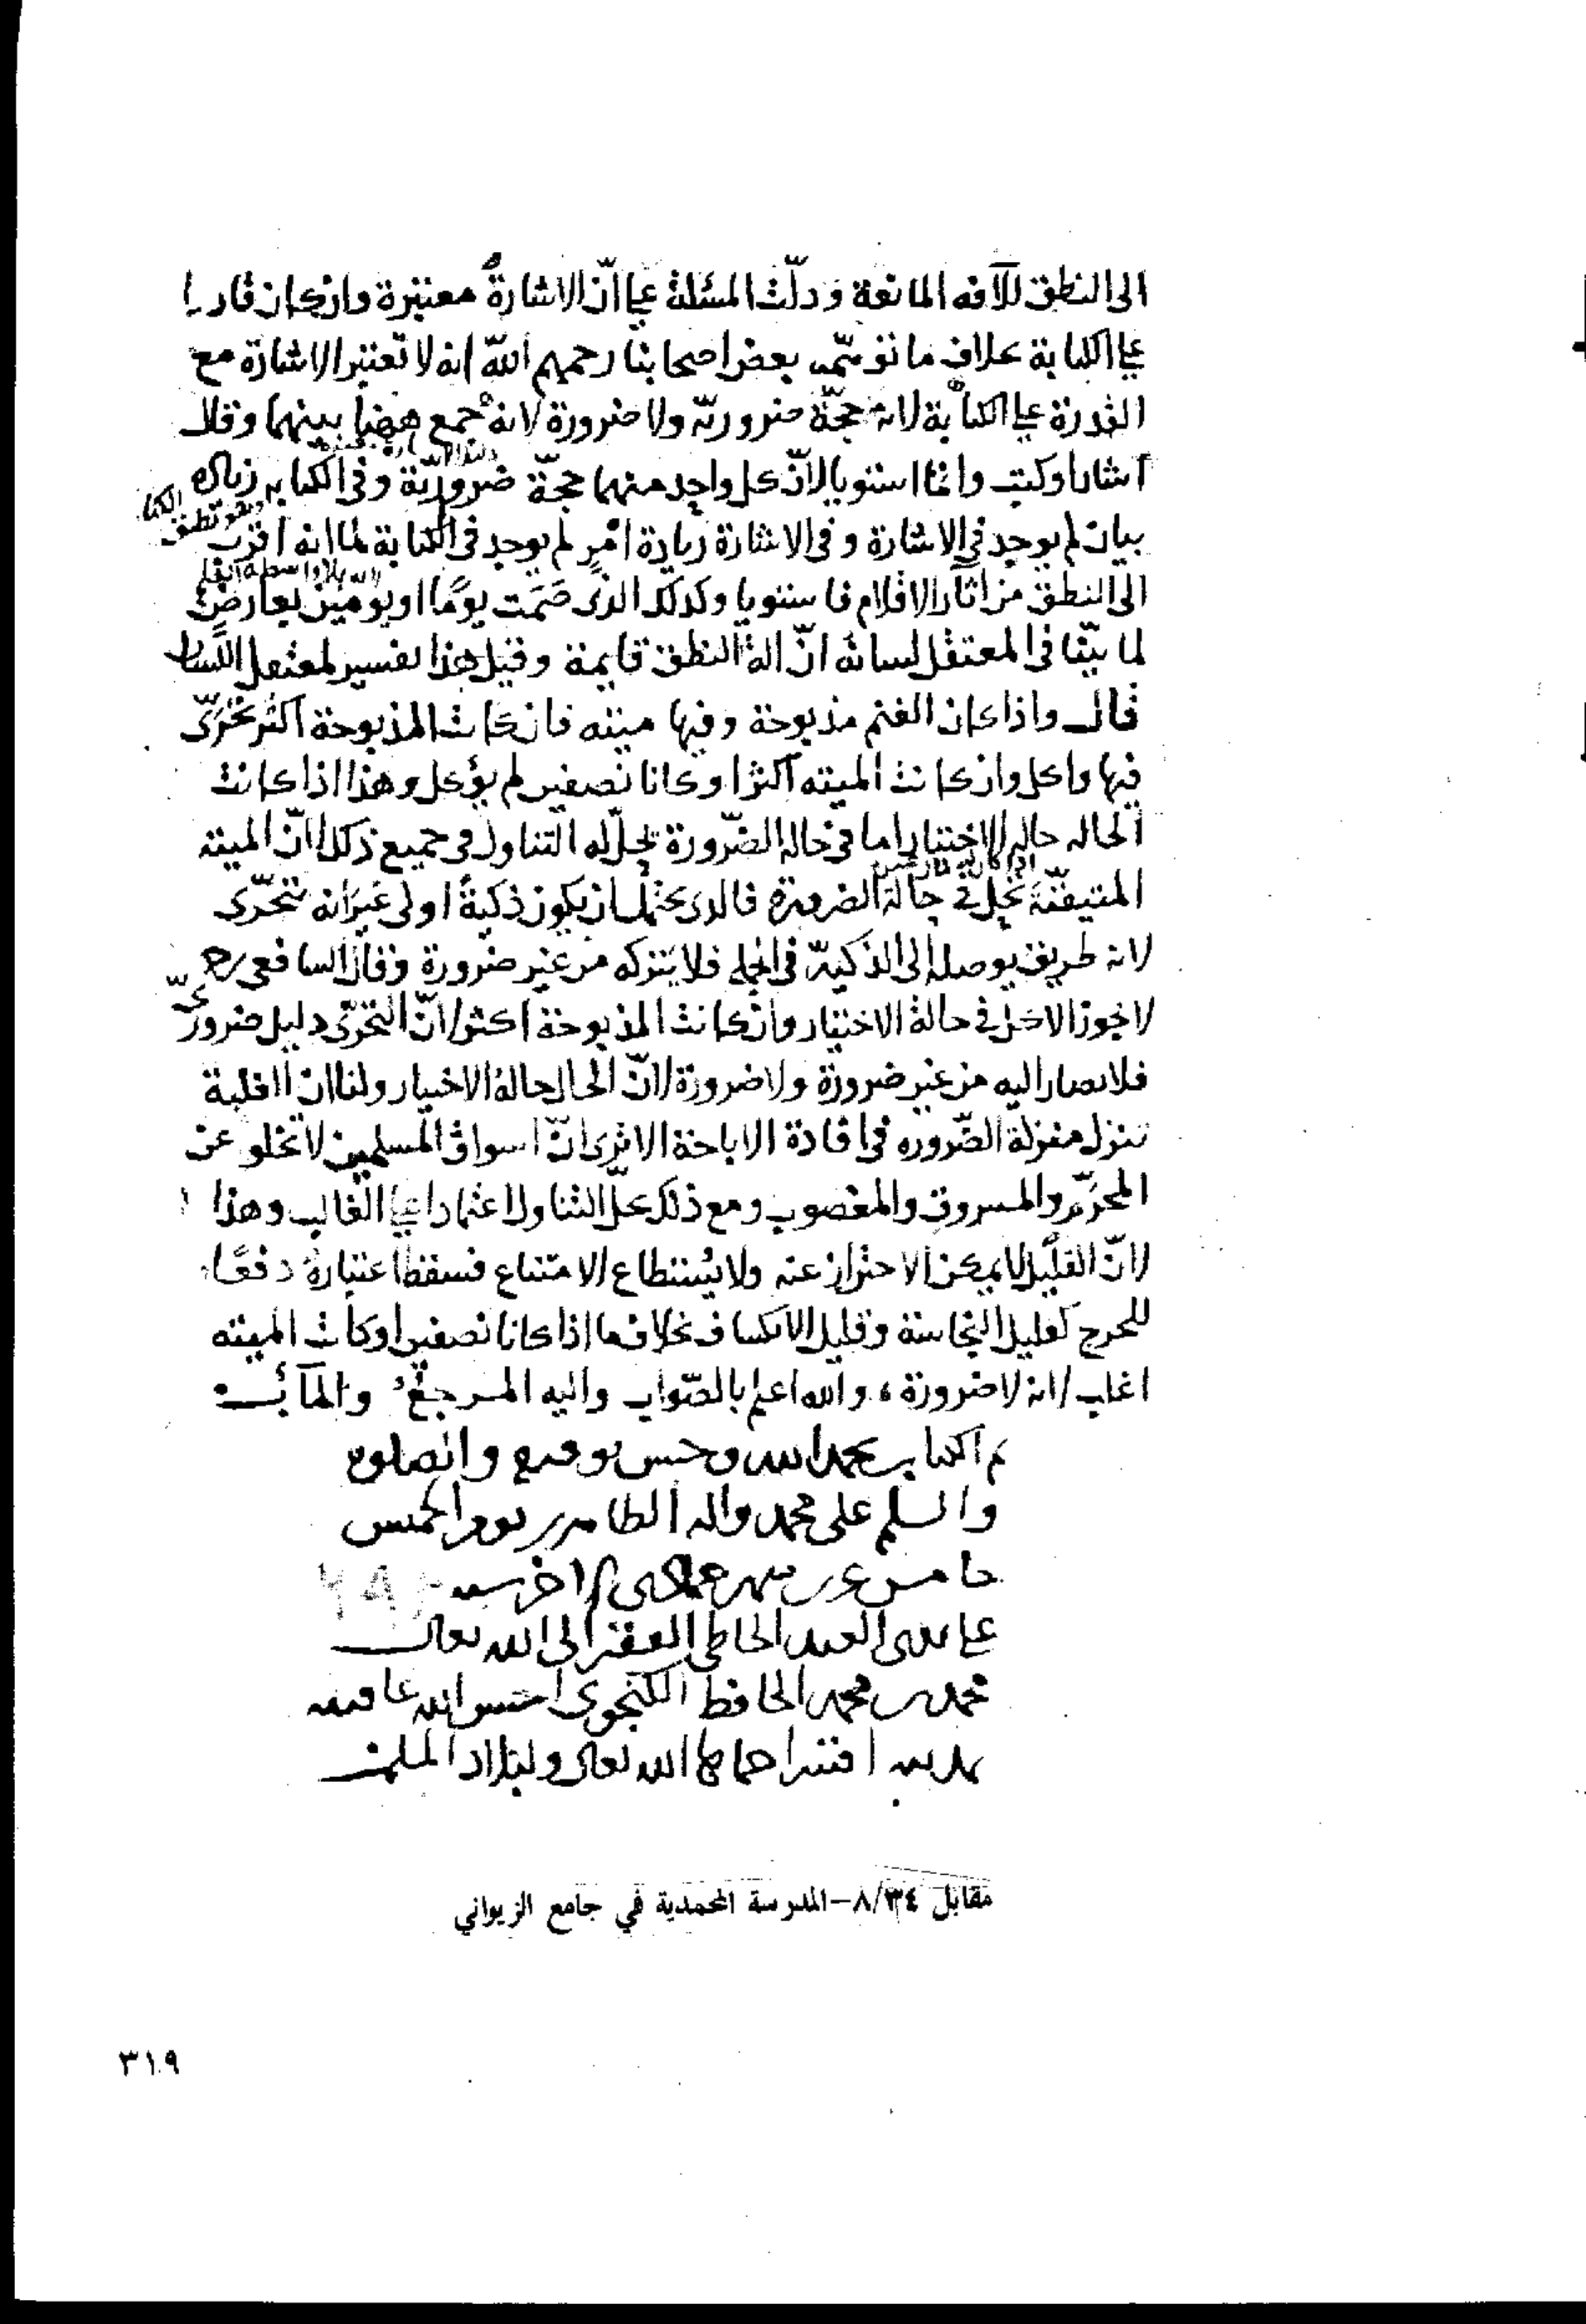 الى النطق للآفه المانعة ودلّت المسئلة على انّ الاشارة معتبرة وان كان قادرا
على الكتابة بخلاف ما توهّمه بعض اصحابنا رحمهم الله انه لا تعتبر الاشارة مع
القدرة على الكتابة لانه حجّة ضروريّة ولا ضرورة لانه جمع ههنا بينهما وقال
اشار او كتب وانما استويا لانّ كل واحد منهما حجّة ضروريّة وفي الكتابه زياده
بيان لم يوجد في الاشارة وفي الاشارة زيادة امرٍ لم يوجد في الكتابة لما انه اقرب
الى النطق من اثار الاقلام فاستويا وكذلك الذى صَمَت يومًا او يومين بعارض
لما بيّنّا في المعتقل لسانه انّ الة النطق قايمة وقيل هذا تفسير لمعتقل اللسان
قال واذا كان الغنم مذبوحة وفيها ميته فان كانت المذبوحة اكثر تحرّى
فيها واكل وان كانت الميته اكثر او كانا نصفين لم يؤكل وهذا اذا كانت
الحاله حاله الاختيار اما في حالة الضّرورة يحلّ له التناول في جميع ذلك لانّ الميته
المتيقّنة تحل في حالة الضرورة فالذى يحتمل ان يكون ذكيةً اولى غير انه يتحرّى
لانه طريق يوصله الى الذكيّة في الجملة فلا يتركه من غير ضرورة وقال الشافعى رحـ
لا يجوز الاكل في حالة الاختيار وان كانت المذبوحة اكثر لانّ التحرّى دليل ضرورىّ
فلا يصار اليه من غير ضرورة ولا ضرورة لانّ الحال حالة الاختيار ولنا ان الغلبة
تنزل منزلة الضّروره في افادة الاباحة الا ترى انّ اسواق المسلمين لا تخلو عن
المحرّم والمسروق والمغصوب ومع ذلك يحلّ التناول اعتمادا على الغالب وهذا
لانّ القليل لا يمكن الاحتراز عنه ولا يُستطاع الامتناع فسقط اعتباره دفعًا
للحرج كقليل النجاسة وقليل الانكشاف بخلاف ما اذا كانا نصفين او كانت الميته
اغلب لانه لا ضرورة، والله اعلم بالصّواب واليه المرجع والمآب
تم الكتاب بحمد الله وحسن توفيقه والصلوة
والسلم على محمد واله الطاهرين يوم الخميس
خامس عشر شهر جمادى الاخر سنه
على يدى العبد الخاطى الفقير الى الله تعالى
محمد بن محمد الحافظ الكنجوى احسن الله عاقبته
بمدينه اقشرا حماها الله تعالى ولبلاد المسلمين
مقابل ٨/٣٤–المدرسة المحمدية في جامع الزيواني
٣١٩